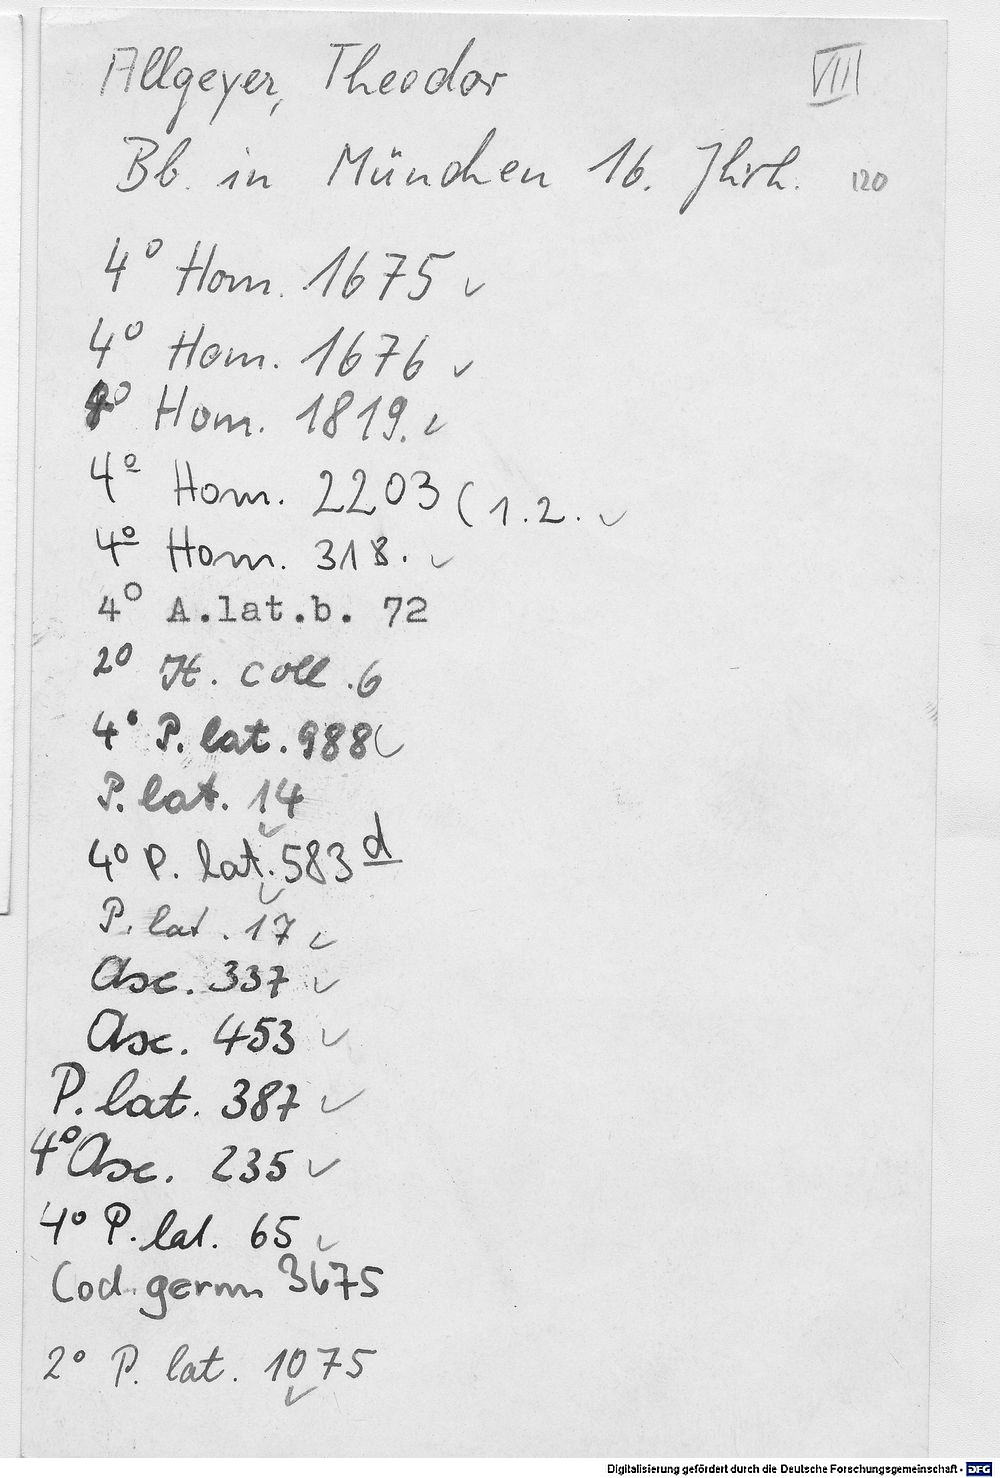 Allgeyer, Theodor VIII
Bb. in München 16. Jhrh. 120
4° Hom. 1675 ✓
4° Hom. 1676 ✓
4° Hom. 1819. ✓
4° Hom. 2203 (1.2. ✓
4° Hom. 318. ✓
4° A.lat.b. 72
2° H. coll. 6
4° P. lat. 988 ✓
P. lat. 14 ✓
4° P. lat. 583 d ✓
P. lat. 17 ✓
Asc. 337 ✓
Asc. 453 ✓
P. lat. 387 ✓
4° Asc. 235 ✓
4° P. lat. 65 ✓
Cod. germ. 3675
2° P. lat. 1075 ✓
Digitalisierung gefördert durch die Deutsche Forschungsgemeinschaft - DFG